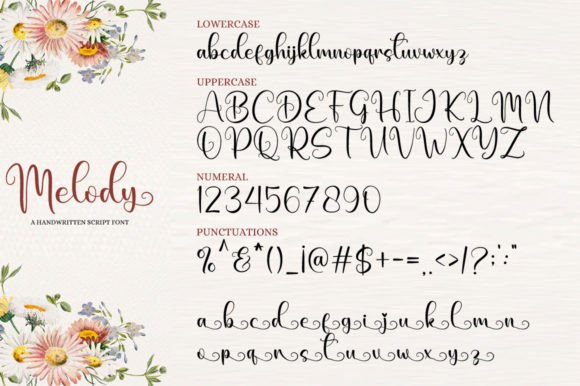 LOWERCASE
abcdefghijklmnopqrstuvwxyz
UPPERCASE
ABCDEFGHIJKLMN
OPQRSTUVWXYZ
Melody
A HANDWRITTEN SCRIPT FONT
NUMERAL
1234567890
PUNCTUATIONS
%^&*()_¡@#$+-=,.<>/?;':"
a b c d e f g i j k l m n
o p q r s t u v w x y z